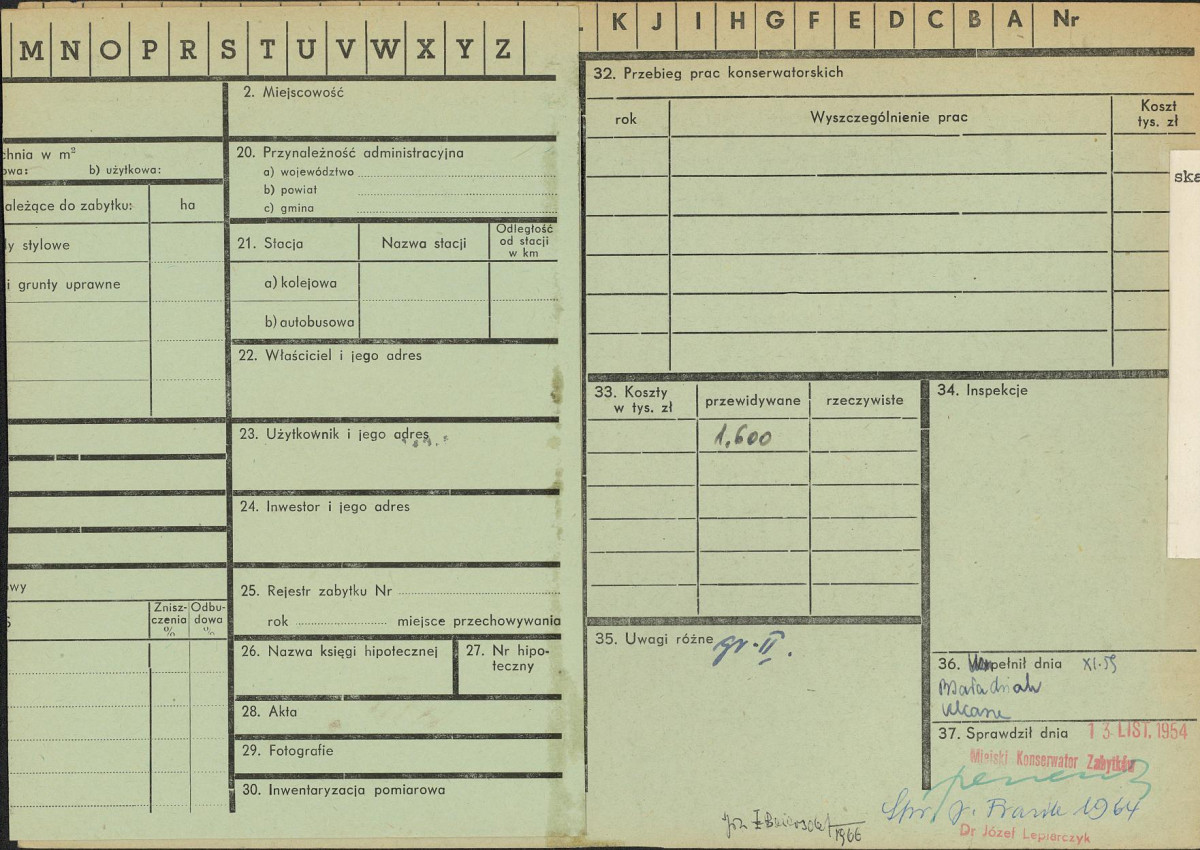 M N O P R S T U V W X Y Z
2. Miejscowość
chnia w m²
owa: b) użytkowa:
ależące do zabytku: ha
y stylowe
i grunty uprawne
owy
Znisz-
czenia
%
Odbu-
dowa
%
20. Przynależność administracyjna
a) województwo
b) powiat
c) gmina
21. Stacja
Nazwa stacji
Odległość
od stacji
w km
a) kolejowa
b) autobusowa
22. Właściciel i jego adres
23. Użytkownik i jego adres
24. Inwestor i jego adres
25. Rejestr zabytku Nr
rok miejsce przechowywania
26. Nazwa księgi hipotecznej
27. Nr hipo-
teczny
28. Akta
29. Fotografie
30. Inwentaryzacja pomiarowa
K J I H G F E D C B A Nr
32. Przebieg prac konserwatorskich
rok
Wyszczególnienie prac
Koszt
tys. zł
ska
33. Koszty
w tys. zł
przewidywane
rzeczywiste
1,600
34. Inspekcje
35. Uwagi różne gr. II.
36. pełnił dnia XI.59
37. Sprawdził dnia 13 LIST. 1954
Miejski Konserwator Zabytków
1964
Dr Józef Lepiarczyk
1966